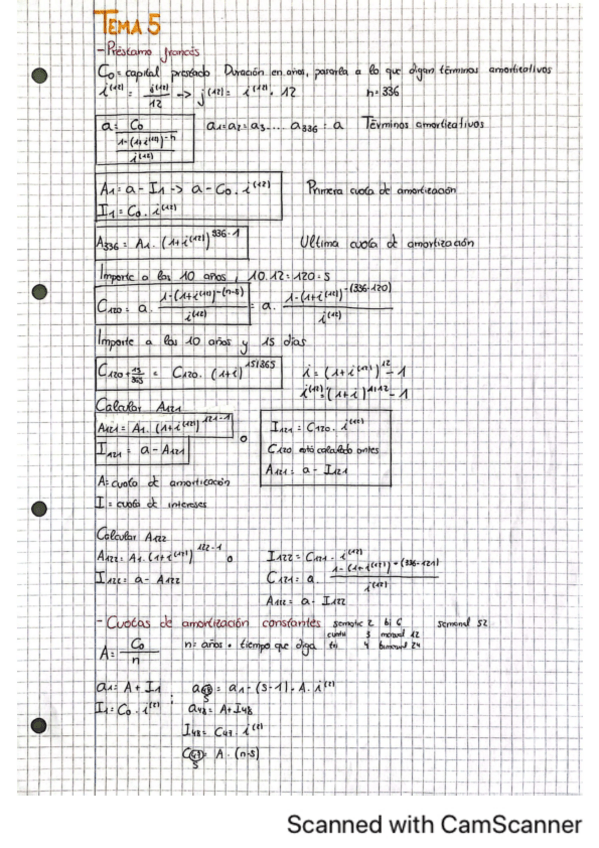 TEMA 5
- Préstamo francés
C₀ = capital prestado Duración en años, pasarla a lo que digan términos amortizativos
i⁽¹²⁾ = j⁽¹²⁾/12 -> j⁽¹²⁾ = i⁽¹²⁾ · 12 n = 336
a = C₀ / ((1-(1+i⁽¹²⁾)⁻ⁿ)/i⁽¹²⁾) a₁=a₂=a₃.... a₃₃₆ = a Términos amortizativos
A₁ = a - I₁ -> a - C₀ · i⁽¹²⁾ Primera cuota de amortización
I₁ = C₀ · i⁽¹²⁾
A₃₃₆ = A₁ · (1+i⁽¹²⁾)³³⁶⁻¹ Ultima cuota de amortización
Importe a los 10 años, 10·12 = 120 = s
C₁₂₀ = a · (1-(1+i⁽¹²⁾)^-(n-s))/i⁽¹²⁾ = a · (1-(1+i⁽¹²⁾)^-(336-120))/i⁽¹²⁾
Importe a los 10 años y 15 días
C₁₂₀+15/365 = C₁₂₀ · (1+i)^15/365 i = (1+i⁽¹²⁾)¹² - 1
i⁽¹²⁾ = (1+i)^1/12 - 1
Calcular A₁₂₁
A₁₂₁ = A₁ · (1+i⁽¹²⁾)¹²¹⁻¹ o I₁₂₁ = C₁₂₀ · i⁽¹²⁾
I₁₂₁ = a - A₁₂₁ C₁₂₀ está calculado antes
A₁₂₁ = a - I₁₂₁
A = cuota de amortización
I = cuota de intereses
Calcular A₁₂₂
A₁₂₂ = A₁ · (1+i⁽¹²⁾)¹²²⁻¹ o I₁₂₂ = C₁₂₁ · i⁽¹²⁾
I₁₂₂ = a - A₁₂₂ C₁₂₁ = a · (1-(1+i⁽¹²⁾)^-(336-121))/i⁽¹²⁾
A₁₂₂ = a - I₁₂₂
- Cuotas de amortización constantes semestre 2 bi 6 semanal 52
3 mensual 12
A = C₀/n n = años · tiempo que diga tri 4 24
a₁ = A + I₁ ; a₄₈ = a₁ - (s-1) · A · i
s
I₁ = C₀ · i a₄₈ = A + I₄₈
I₄₈ = C₄₇ · i
C₄₇ = A · (n-s)
s
Scanned with CamScanner